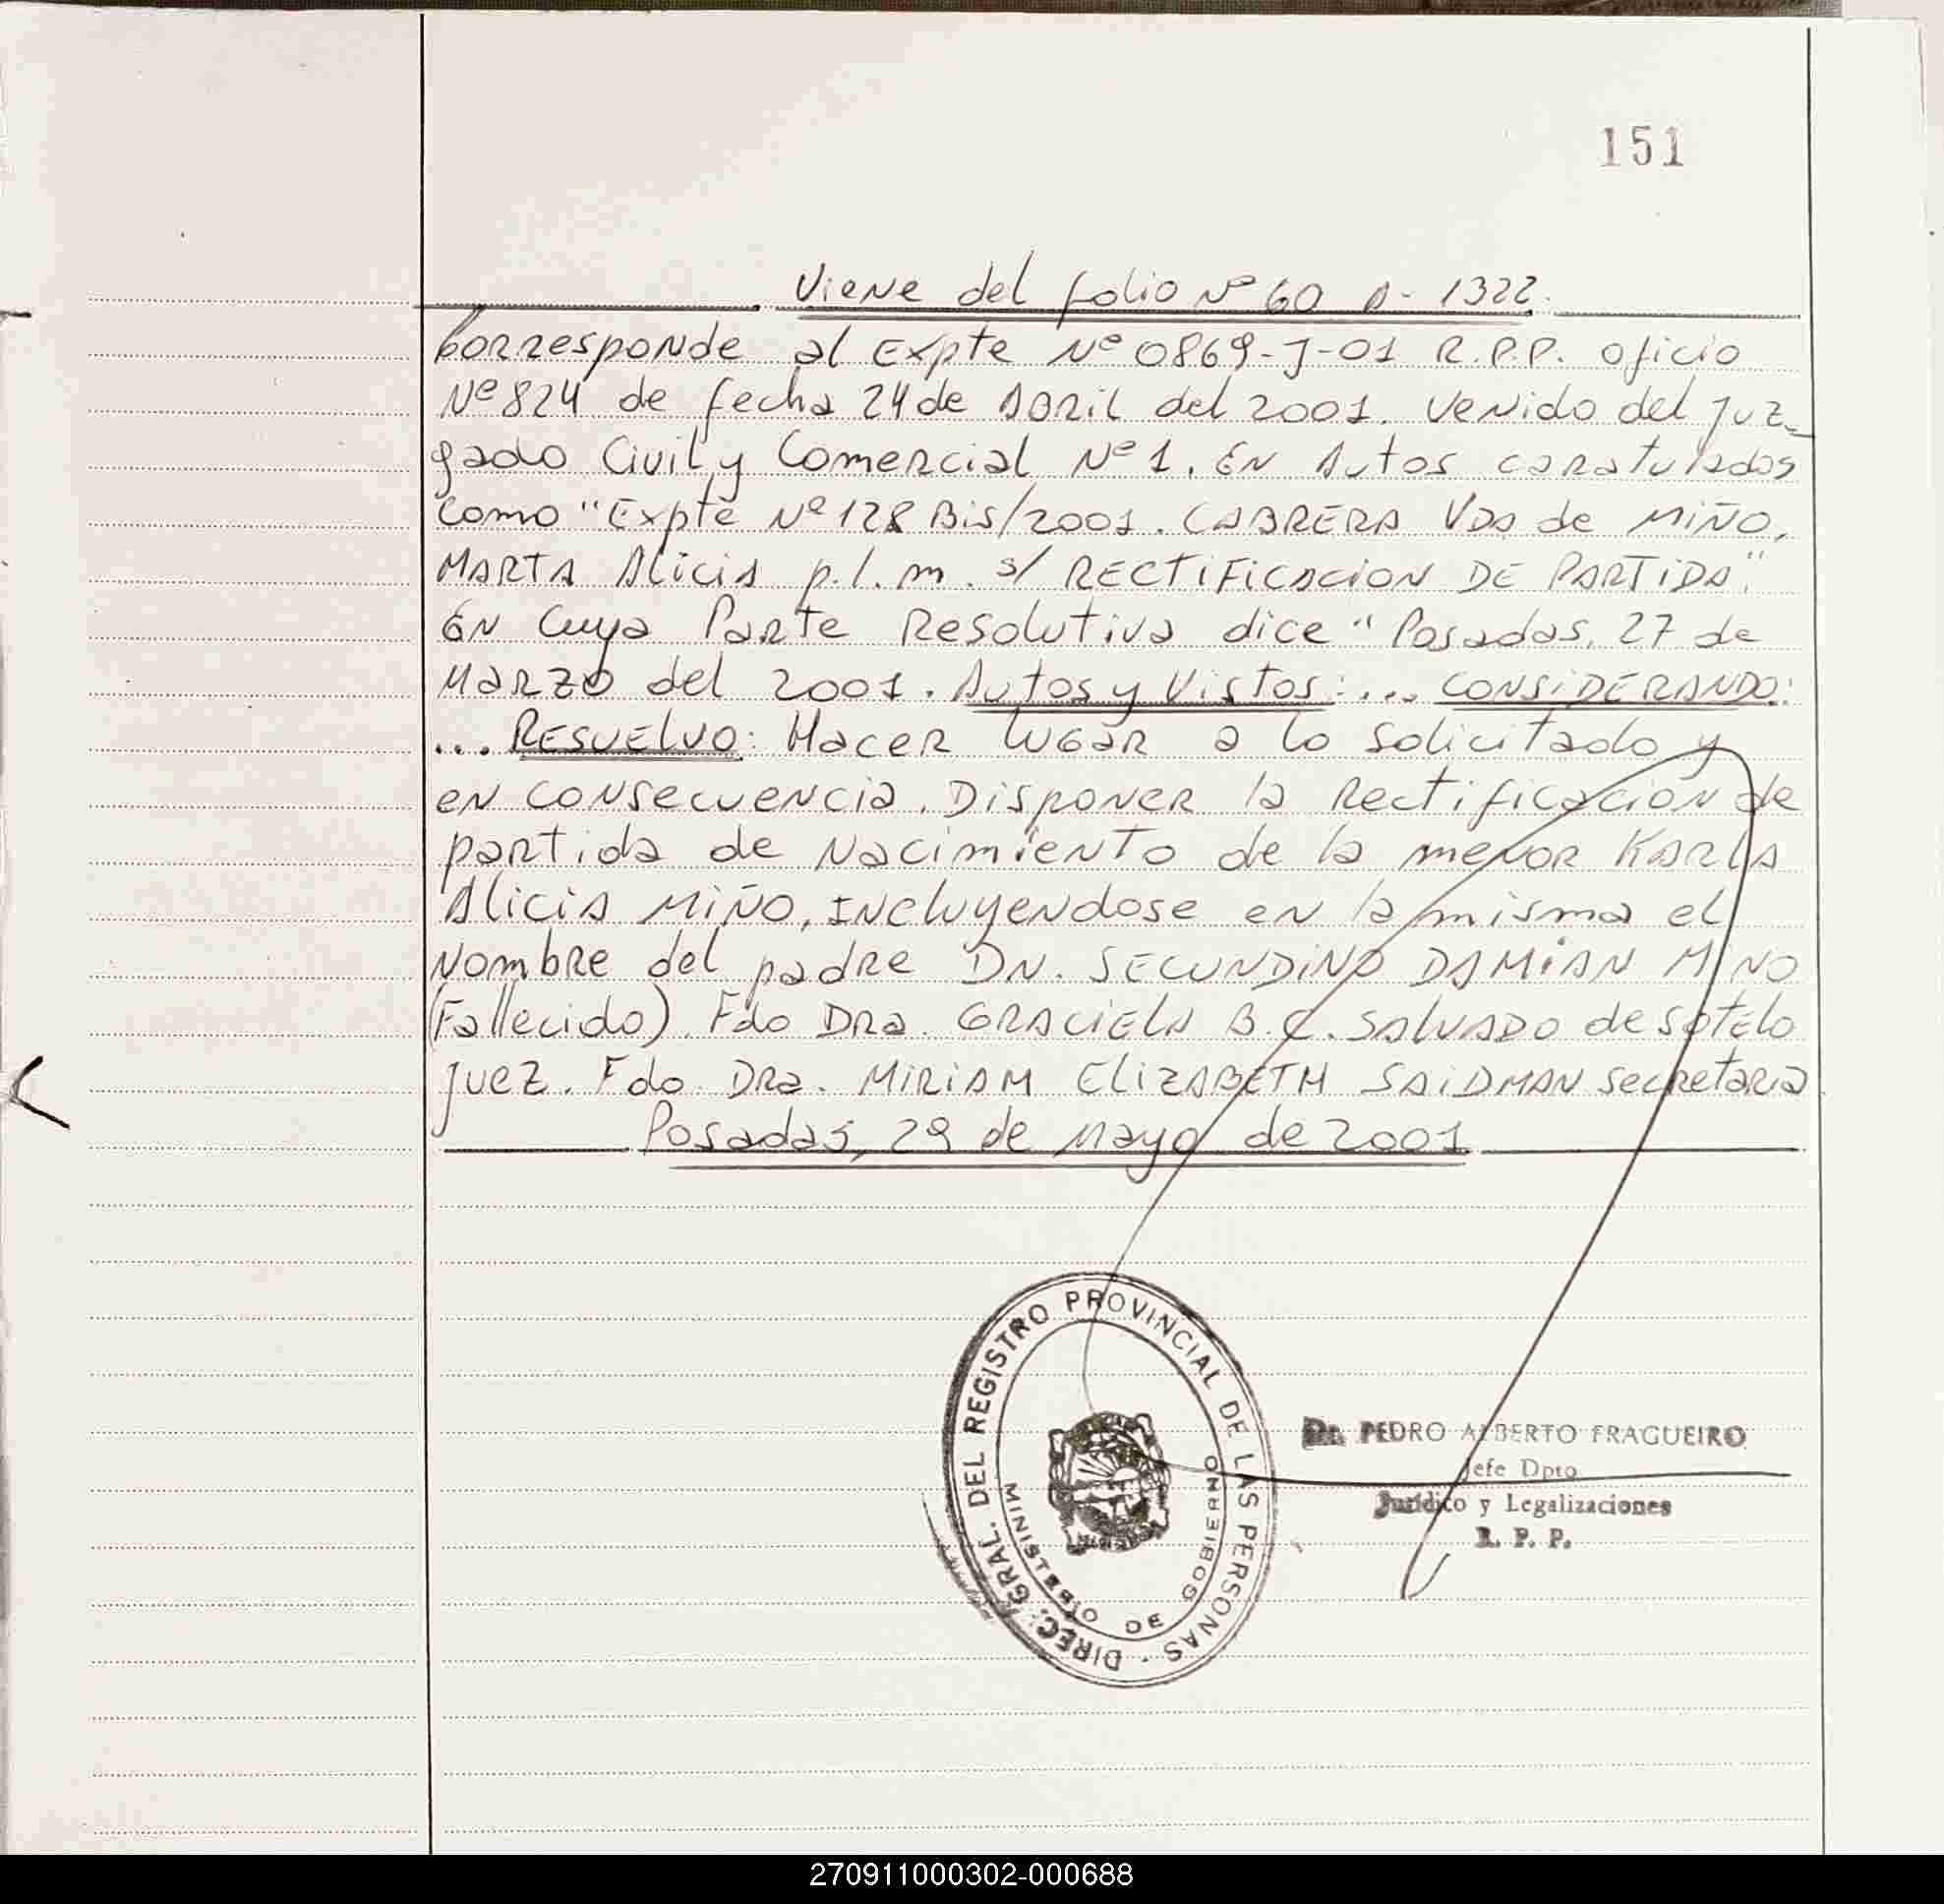 151
Viene del folio Nº 60 A- 1322.
Corresponde al Expte Nº 0869-J-01 R.P.P. oficio
Nº 824 de fecha 24 de Abril del 2001. venido del Juz-
gado Civil y Comercial Nº 1. En Autos caratulados
como "Expte Nº 128 Bis/2001. CABRERA Vda de MIÑO,
MARTA Alicia p.l.m. s/ RECTIFICACION DE PARTIDA".
En cuya Parte Resolutiva dice "Posadas, 27 de
Marzo del 2001. Autos y Vistos:... CONSIDERANDO:
... RESUELVO: Hacer lugar a lo solicitado y
en consecuencia, Disponer la Rectificación de
partida de Nacimiento de la menor KARLA
Alicia MIÑO, Incluyendose en la misma el
Nombre del padre DN. SECUNDINO DAMIAN MIÑO
(Fallecido). Fdo DRa. GRACIELA B.C. SALVADO de SOTELO
Juez. Fdo DRa. MIRIAM ELIZABETH SAIDMAN Secretaria
Posadas, 29 de Mayo de 2001
DIREC. GRAL. DEL REGISTRO PROVINCIAL DE LAS PERSONAS
MINISTERIO DE GOBIERNO
Dr. PEDRO ALBERTO FRAGUEIRO
Jefe Dpto
Jurídico y Legalizaciones
R. P. P.
270911000302-000688